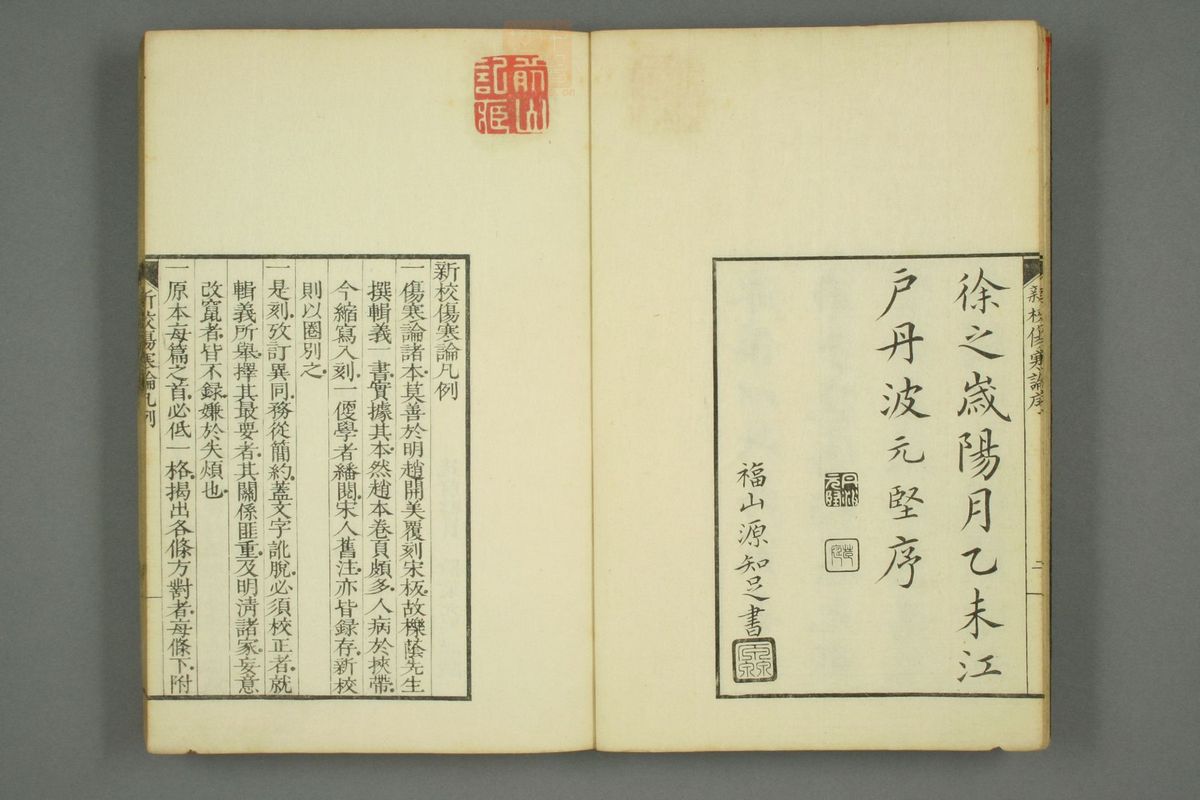 新校傷寒論序
二
徐之歲陽月乙未江
戶丹波元堅序
福山源知足書
新校傷寒論凡例
一傷寒論諸本莫善於明趙開美覆刻宋板故櫟蔭先生
撰輯義一書實據其本然趙本卷頁頗多人病於挾帶
今縮寫入刻一便學者繙閱宋人舊注亦皆録存新校
則以圈別之
一是刻攷訂異同務從簡約蓋文字訛脫必須校正者就
輯義所舉擇其最要者其關係匪重及明清諸家妄意
改竄者皆不録嫌於失煩也
一原本每篇之首必低一格揭出各條方對者每條下附
新校傷寒論凡例